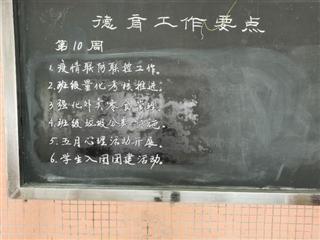 德育工作要点
第10周
1.疫情联防联控工作。
2.班级量化考核推进。
3.强化外卖零食管理。
4.班级垃圾分类实施。
5.五月心理活动开展。
6.学生入团团建活动。